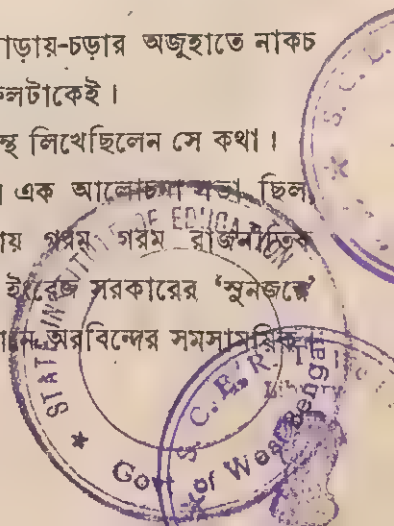 াড়ায়-চড়ার অজুহাতে নাকচ
কলটাকেই।
স্থ লিখেছিলেন সে কথা।
এক আলোচনা সভা ছিল,
ায় গরম গরম রাজনীতিক
ইংরেজ সরকারের ‘সুনজরে’
অরবিন্দের সমসাময়িক
STATE INSTITUTE OF EDUCATION
S. C. E. R. T.
Govt of West Bengal
S. C. E.